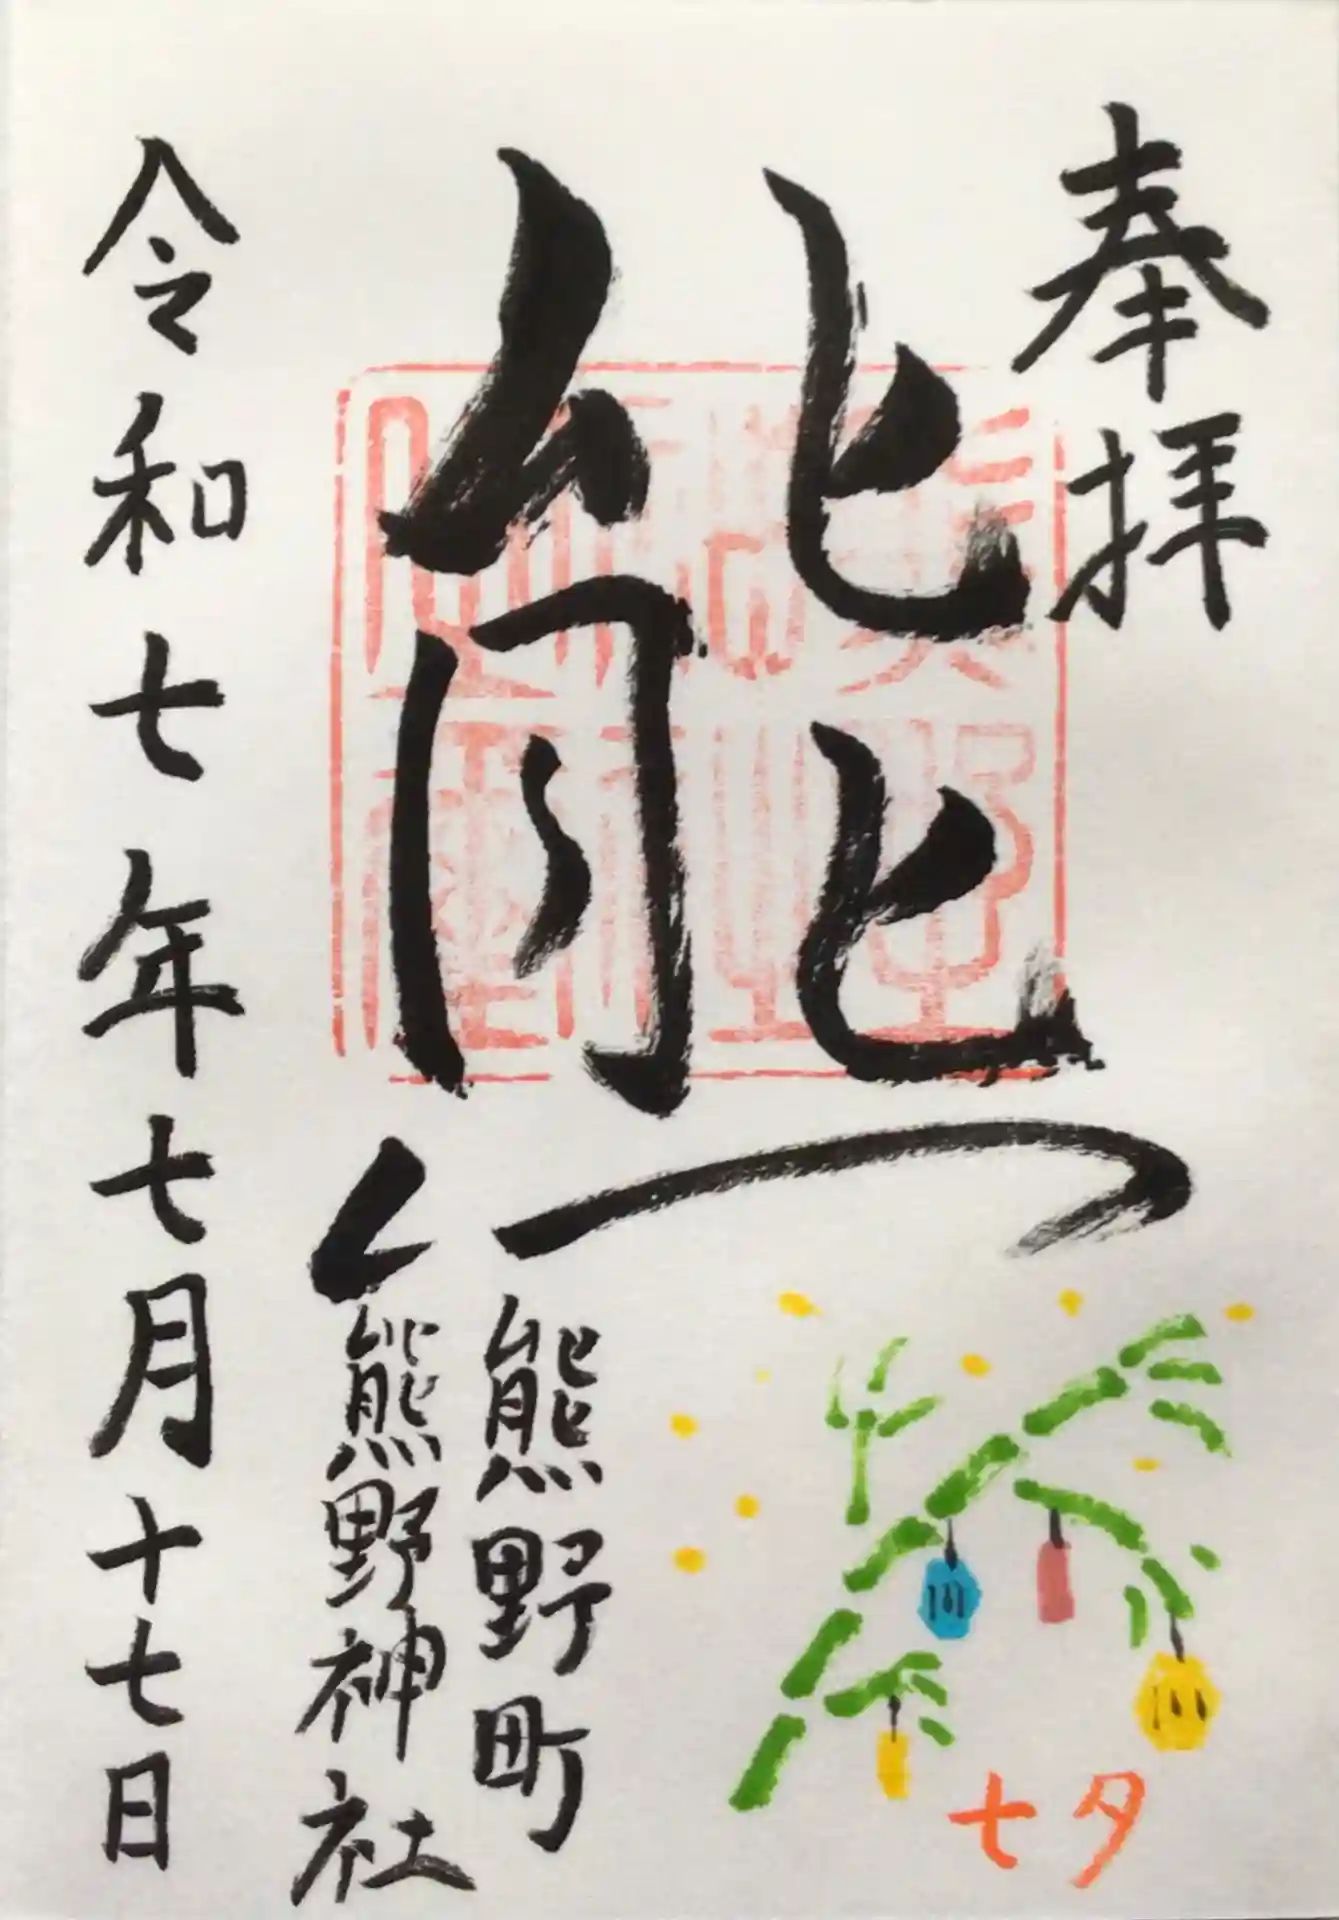 奉拝
熊
熊野町
熊野神社
令和七年七月十七日
七夕